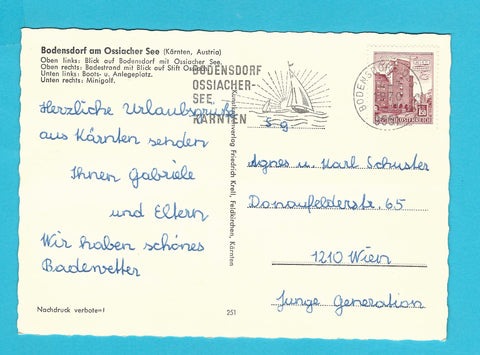 Bodensdorf am Ossiacher See (Kärnten, Austria)
Oben links: Blick auf Bodensdorf mit Ossiacher See.
Oben rechts: Badestrand mit Blick auf Stift Ossiach.
Unten links: Boots- u. Anlegeplatz.
Unten rechts: Minigolf.
BODENSDORF
OSSIACHER-
SEE,
KÄRNTEN
BODENSDORF
REPUBLIK ÖSTERREICH
Herzliche Urlaubsgrüße
aus Kärnten senden
Ihnen Gabriele
und Eltern
Wir haben schönes
Badewetter
Nachdruck verboten!
251
Kunstverlag Friedrich Kroll, Feldkirchen, Kärnten
Agnes u. Karl Schuster
Donaufelderstr. 65
1210 Wien
Junge Generation